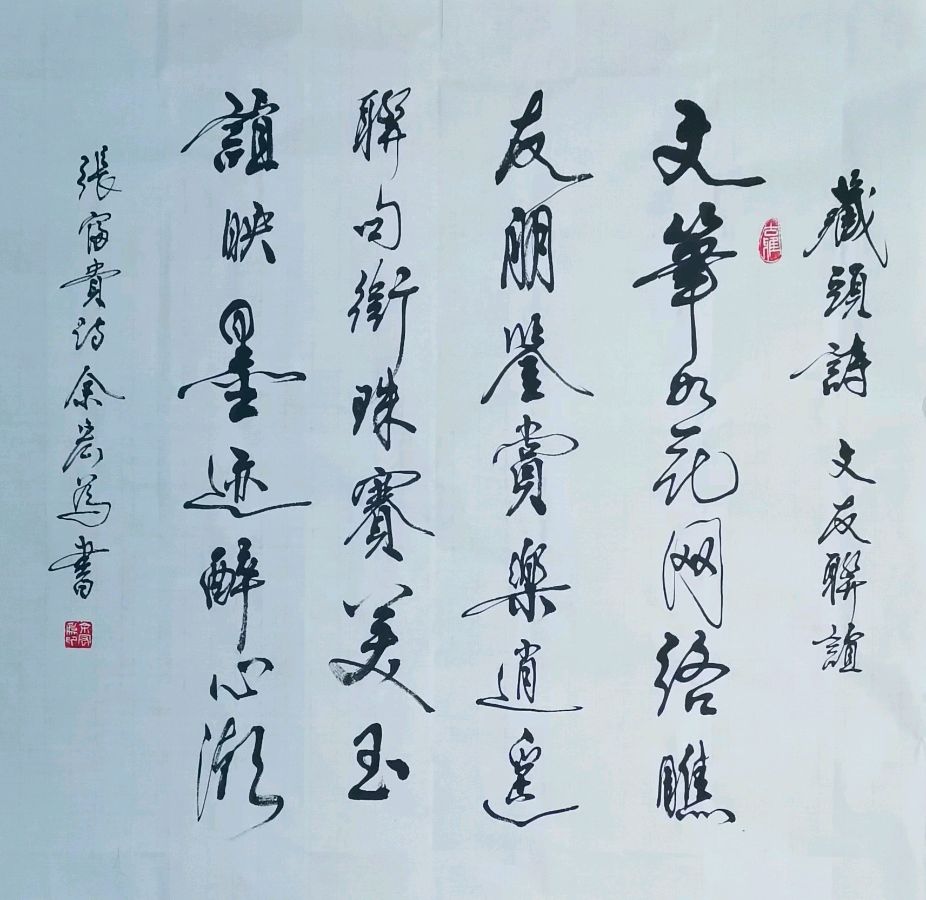 藏頭詩 文友聯誼
文筆如花网络瞧
友朋鉴賞樂逍遥
聯句銜珠賽美玉
誼映墨迹醉心潮
張富貴诗余為書